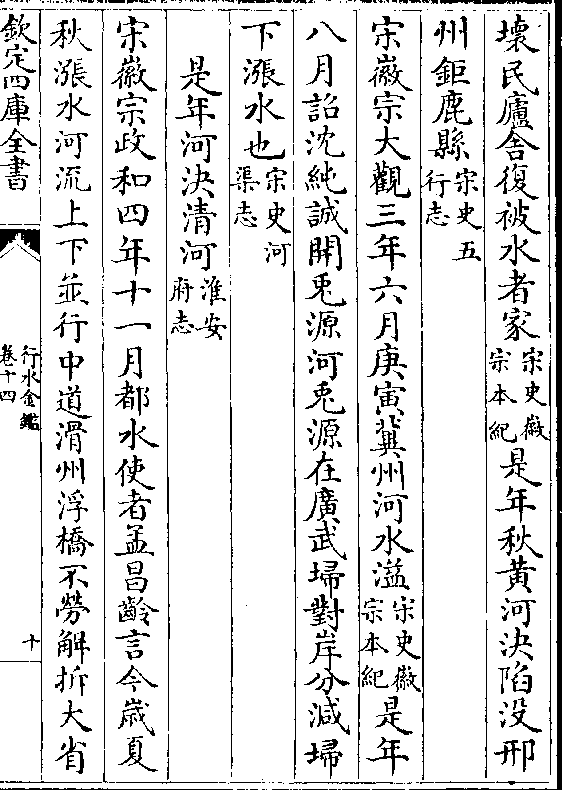 壊民廬舎復被水者家宋史徽宗本紀是年秋黄河決陷没邢
州鉅鹿縣宋史五行志
宋徽宗大觀三年六月庚寅冀州河水溢宋史徽宗本紀是年
八月詔沈純誠開兎源河兎源在廣武埽對岸分減埽
下漲水也宋史河渠志
是年河決清河淮安府志
宋徽宗政和四年十一月都水使者孟昌齡言今嵗夏
秋漲水河流上下並行中道滑州浮橋不勞解拆大省
欽定四庫全書
行水金鑑
卷十四
十